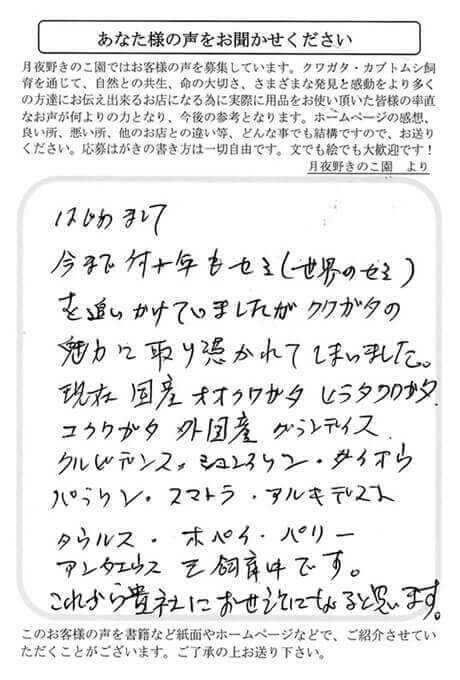 あなた様の声をお聞かせください
月夜野きのこ園ではお客様の声を募集しています。クワガタ・カブトムシ飼
育を通じて、自然との共生、命の大切さ、さまざまな発見と感動をより多く
の方達にお伝え出来るお店になる為に実際に用品をお使い頂いた皆様の率直
なお声が何よりの力となり、今後の参考となります。ホームページの感想、
良い所、悪い所、他のお店との違い等、どんな事でも結構ですので、お送り
ください。応募はがきの書き方は一切自由です。文でも絵でも大歓迎です！
月夜野きのこ園 より
はじめまして
今まで何十年もセミ(世界のセミ)
を追いかけていましたがクワガタの
魅力に取り憑かれてしまいました。
現在 国産オオクワガタ ヒラタクワガタ
コクワガタ 外国産 グランディス
クルビデンス・シェンクリン・ダイオウ
パラワン・スマトラ・アルキデス
タウルス・ホペイ・パリー
アンタエウスを飼育中です。
これから貴社にお世話になると思います。
このお客様の声を書籍など紙面やホームページなどで、ご紹介させてい
ただくことがございます。ご了承の上お送り下さい。